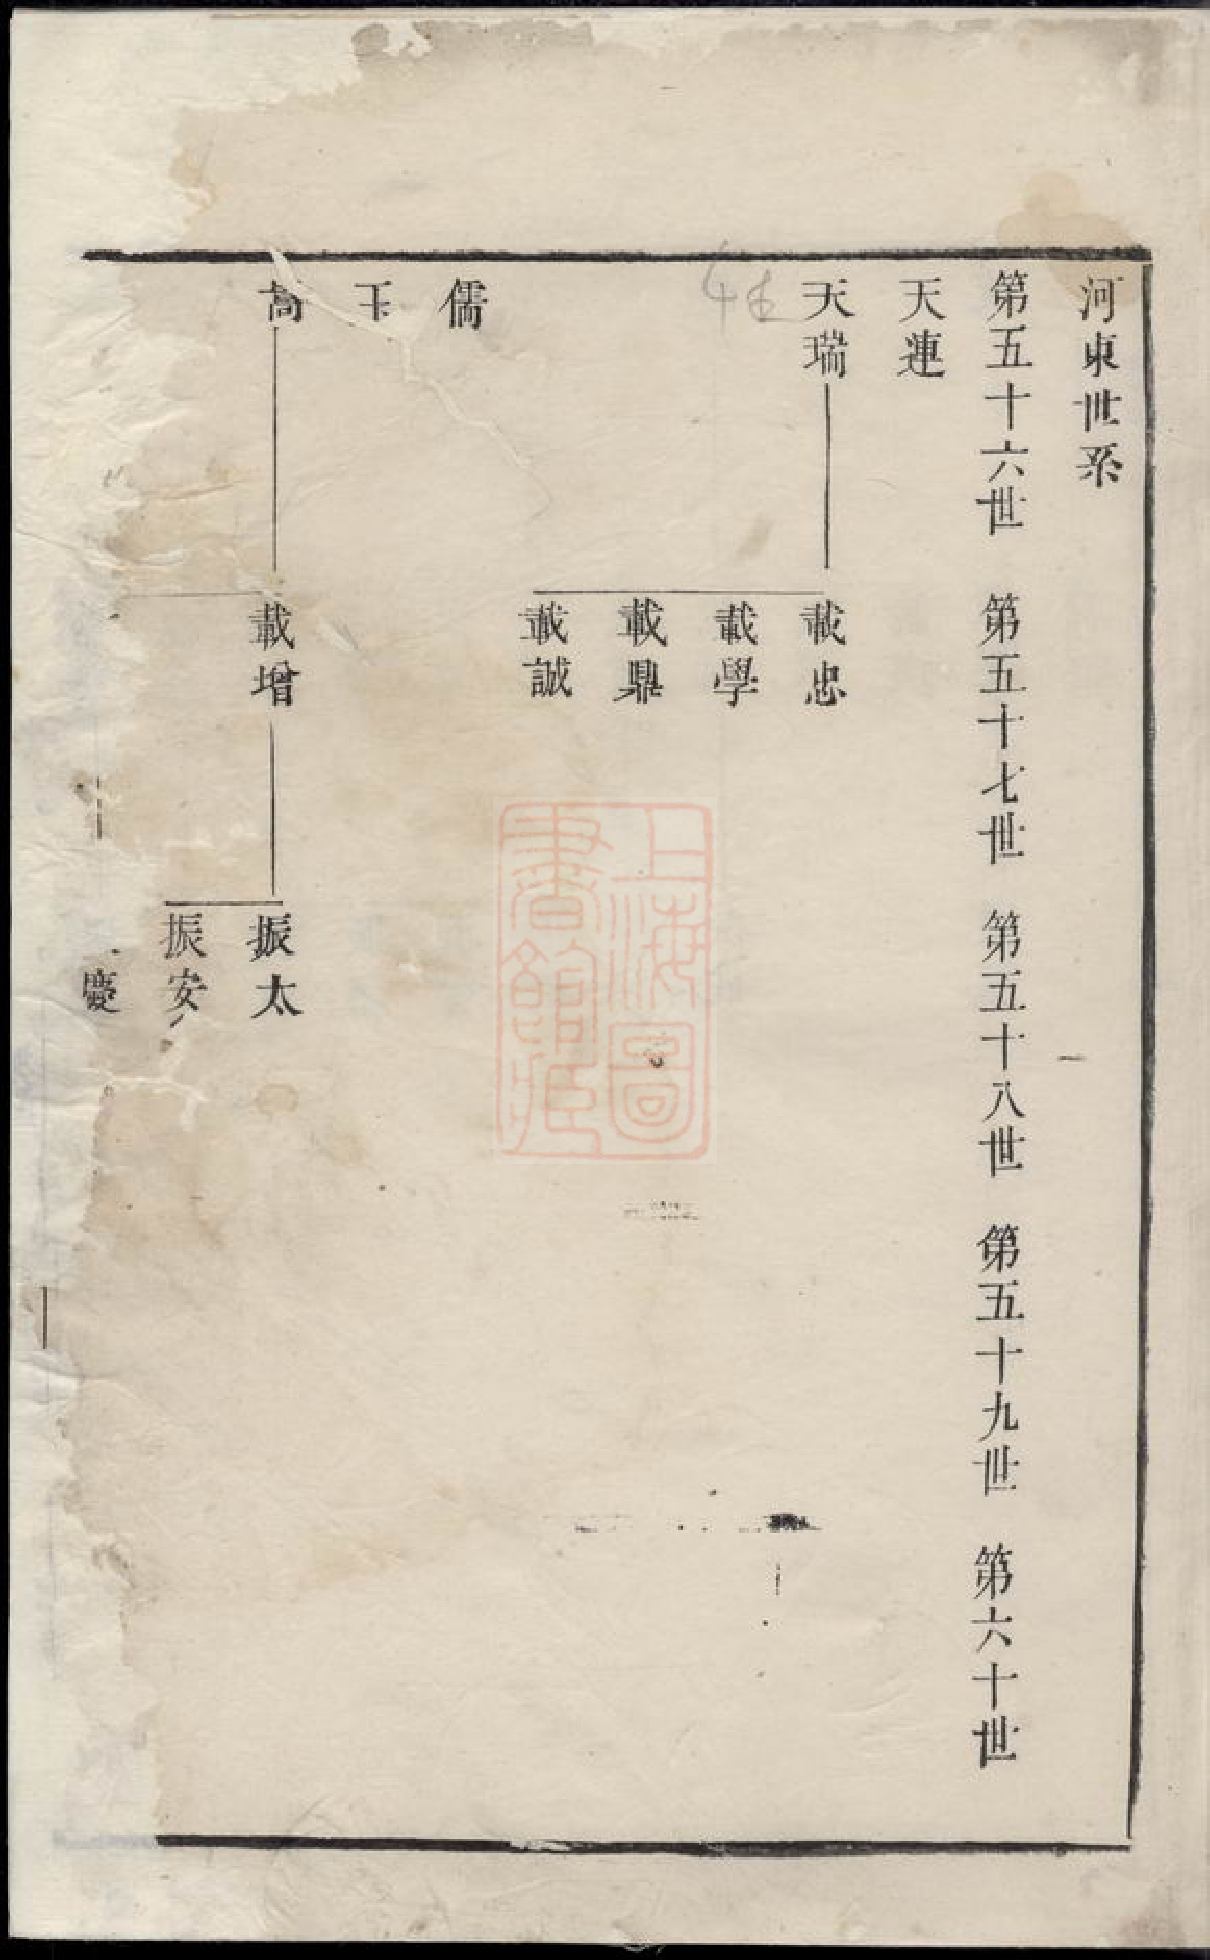 河東世系
第五十六世 第五十七世 第五十八世 第五十九世 第六十世
天連
天瑞 載忠
載學
載鼎
載誠
儒
玉
高 載增 振太
振安
慶
上海圖
書館藏